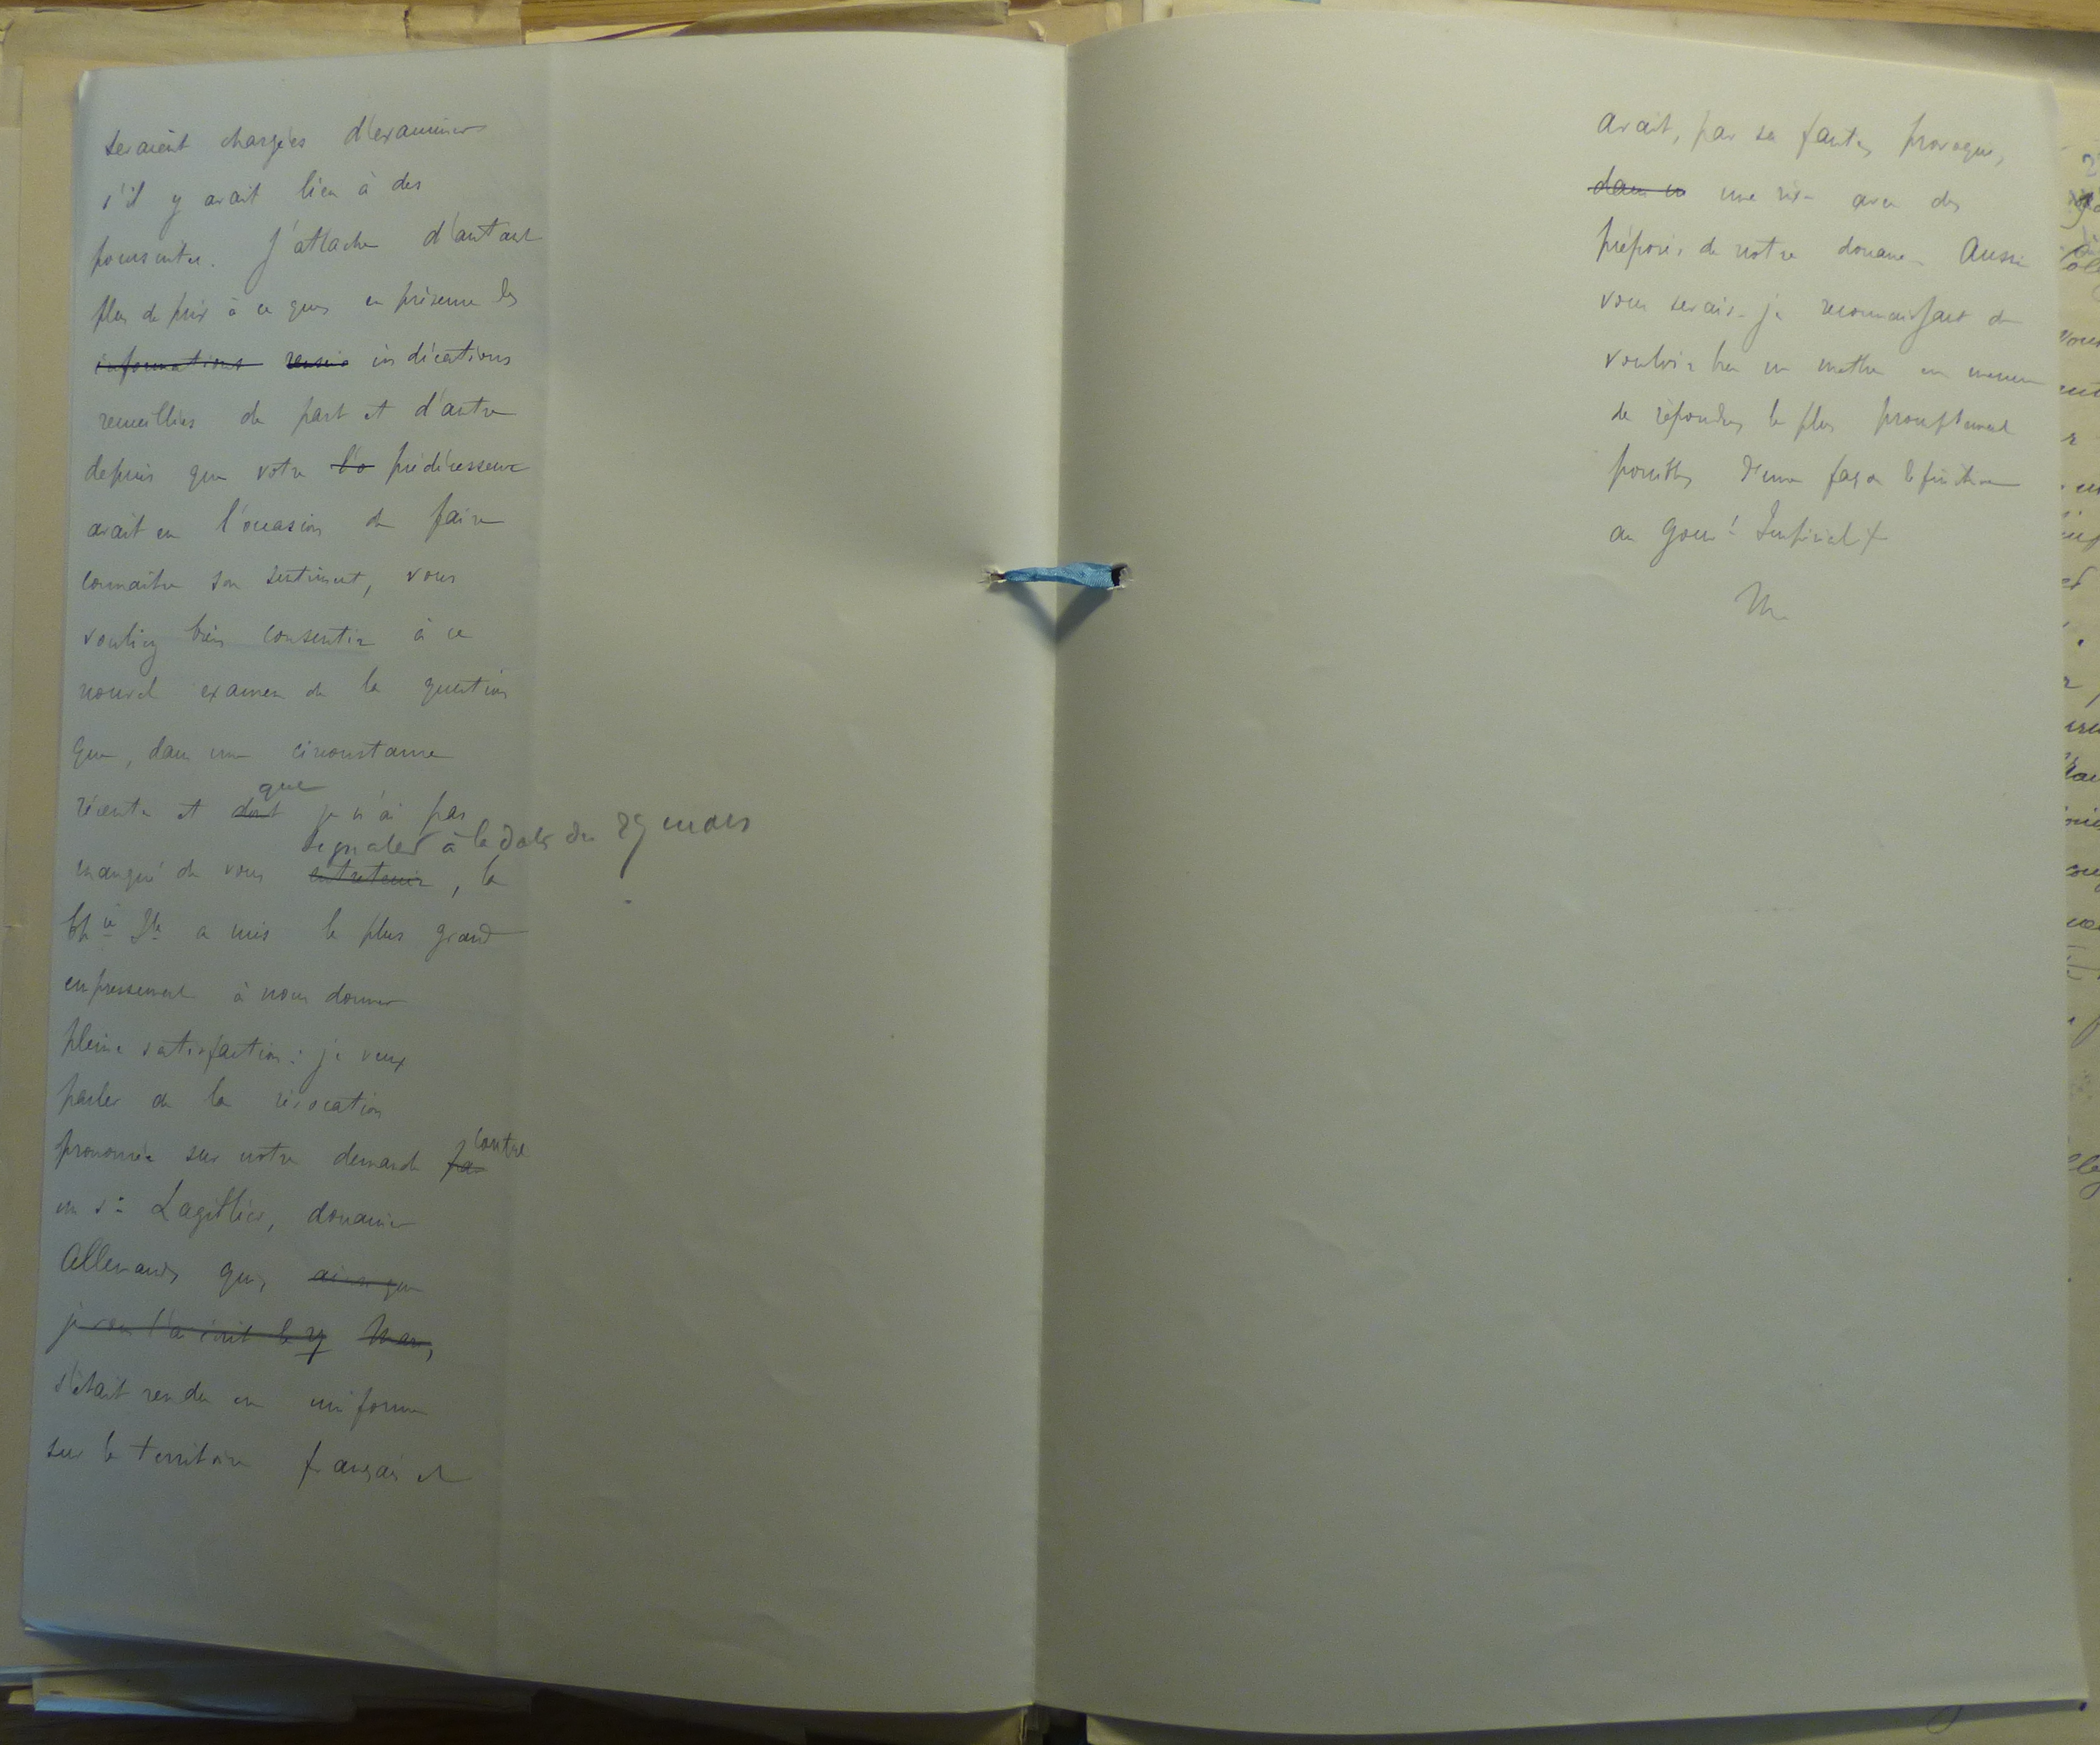 seraient chargées d'examiner
s'il y avait lieu à des
poursuites. J'attache d'autant
plus de prix à ce que, en présence des
informations rensei indications
recueillies de part et d'autre
depuis que votre prédécesseur
avait eu l'occasion de faire
connaître son sentiment, vous
vouliez bien consentir à ce
nouvel examen de la question
que, dans une circonstance
que
récente et dont je n'ai pas
signaler à la date du 29 mars
manqué de vous entretenir, la
a mis le plus grand
empressement à nous donner
pleine satisfaction: je veux
parler de la révocation
contre
prononcée sur notre demande pa
un Sr Lagillier, douanier
Allemand, qui, ainsi que
je vous l'ai écrit le 29 Mars,
s'était rendu en uniforme
sur le territoire français et
avait, par sa faute, provoqué,
dans u une rixe avec des
préposés de notre douane. Aussi
vous serais-je reconnaissant de
vouloir bien me mettre en mesure
de répondre le plus promptement
possible d'une façon définitive
au Gouvt Impérial